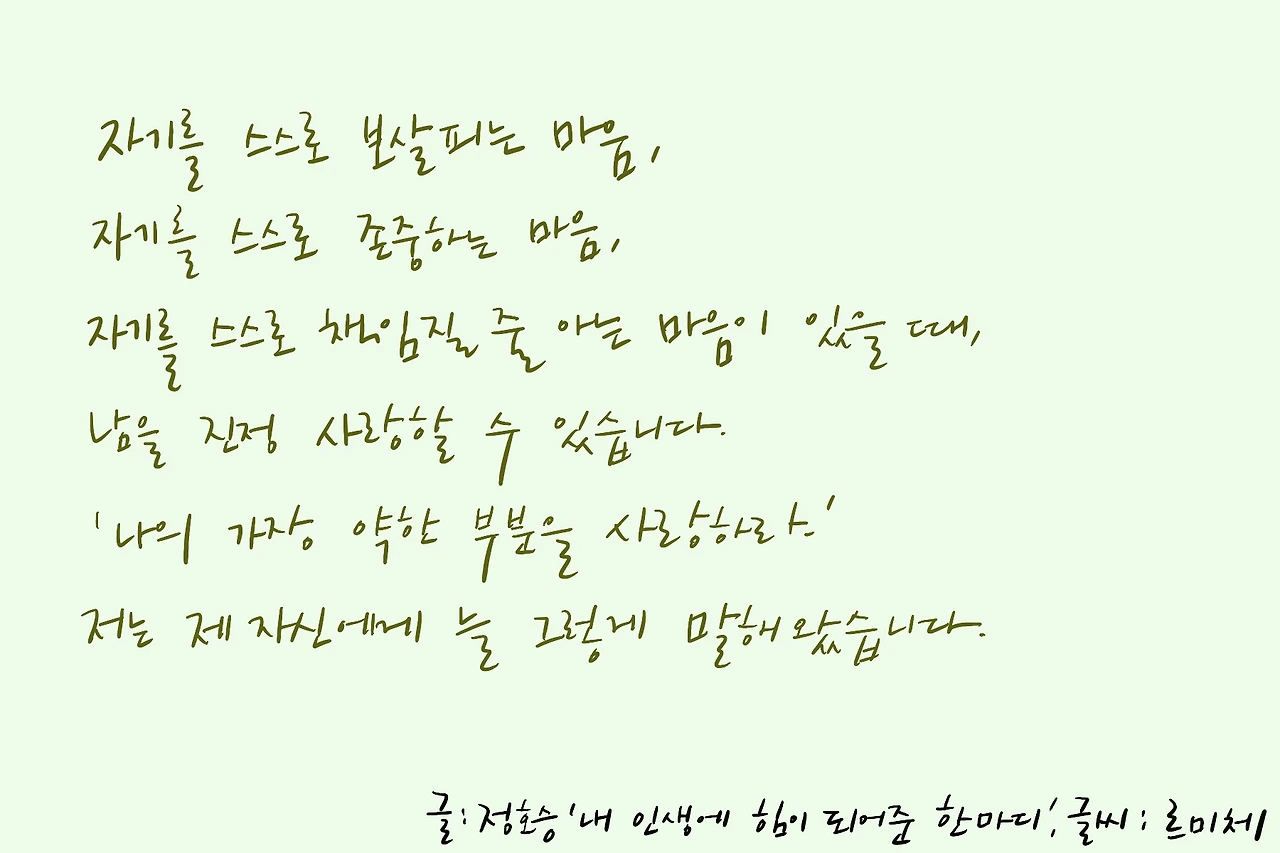 자기를 스스로 보살피는 마음,
자기를 스스로 존중하는 마음,
자기를 스스로 책임질 줄 아는 마음이 있을 때,
남을 진정 사랑할 수 있습니다.
'나의 가장 약한 부분을 사랑하라.'
저는 제 자신에게 늘 그렇게 말해 왔습니다.
글: 정호승 '내 인생에 힘이 되어준 한마디', 글씨 : 르미체